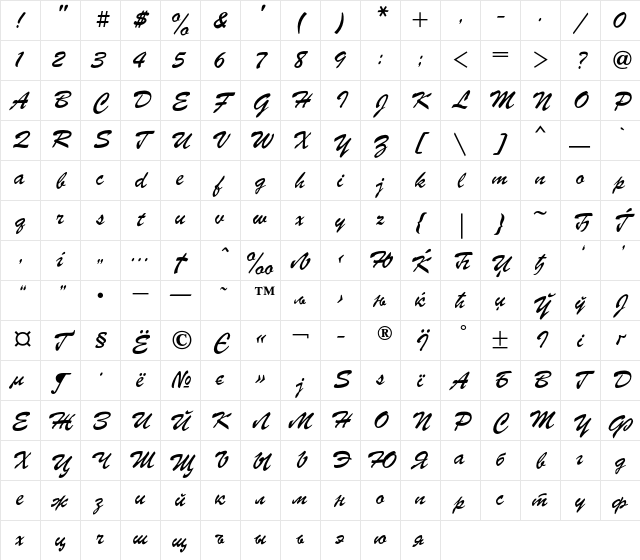 ! " # $ % & ' ( ) * + , - . / 0
1 2 3 4 5 6 7 8 9 : ; < = > ? @
A B C D E F G H I J K L M N O P
Q R S T U V W X Y Z [ \ ] ^ _ `
a b c d e f g h i j k l m n o p
q r s t u v w x y z { | } ~ Ђ Ѓ
‚ ѓ „ … † ˆ ‰ Љ ‹ Њ Ќ Ћ Џ ђ ‘ ’
“ ” • – — ˜ ™ љ › њ ќ ћ џ Ў ў Ј
¤ Ґ § Ё © Є « ¬ - ® Ї ° ± І і ґ
µ ¶ · ё № є » ј Ѕ ѕ ї А Б В Г Д
Е Ж З И Й К Л М Н О П Р С Т У Ф
Х Ц Ч Ш Щ Ъ Ы Ь Э Ю Я а б в г д
е ж з и й к л м н о п р с т у ф
х ц ч ш щ ъ ы ь э ю я